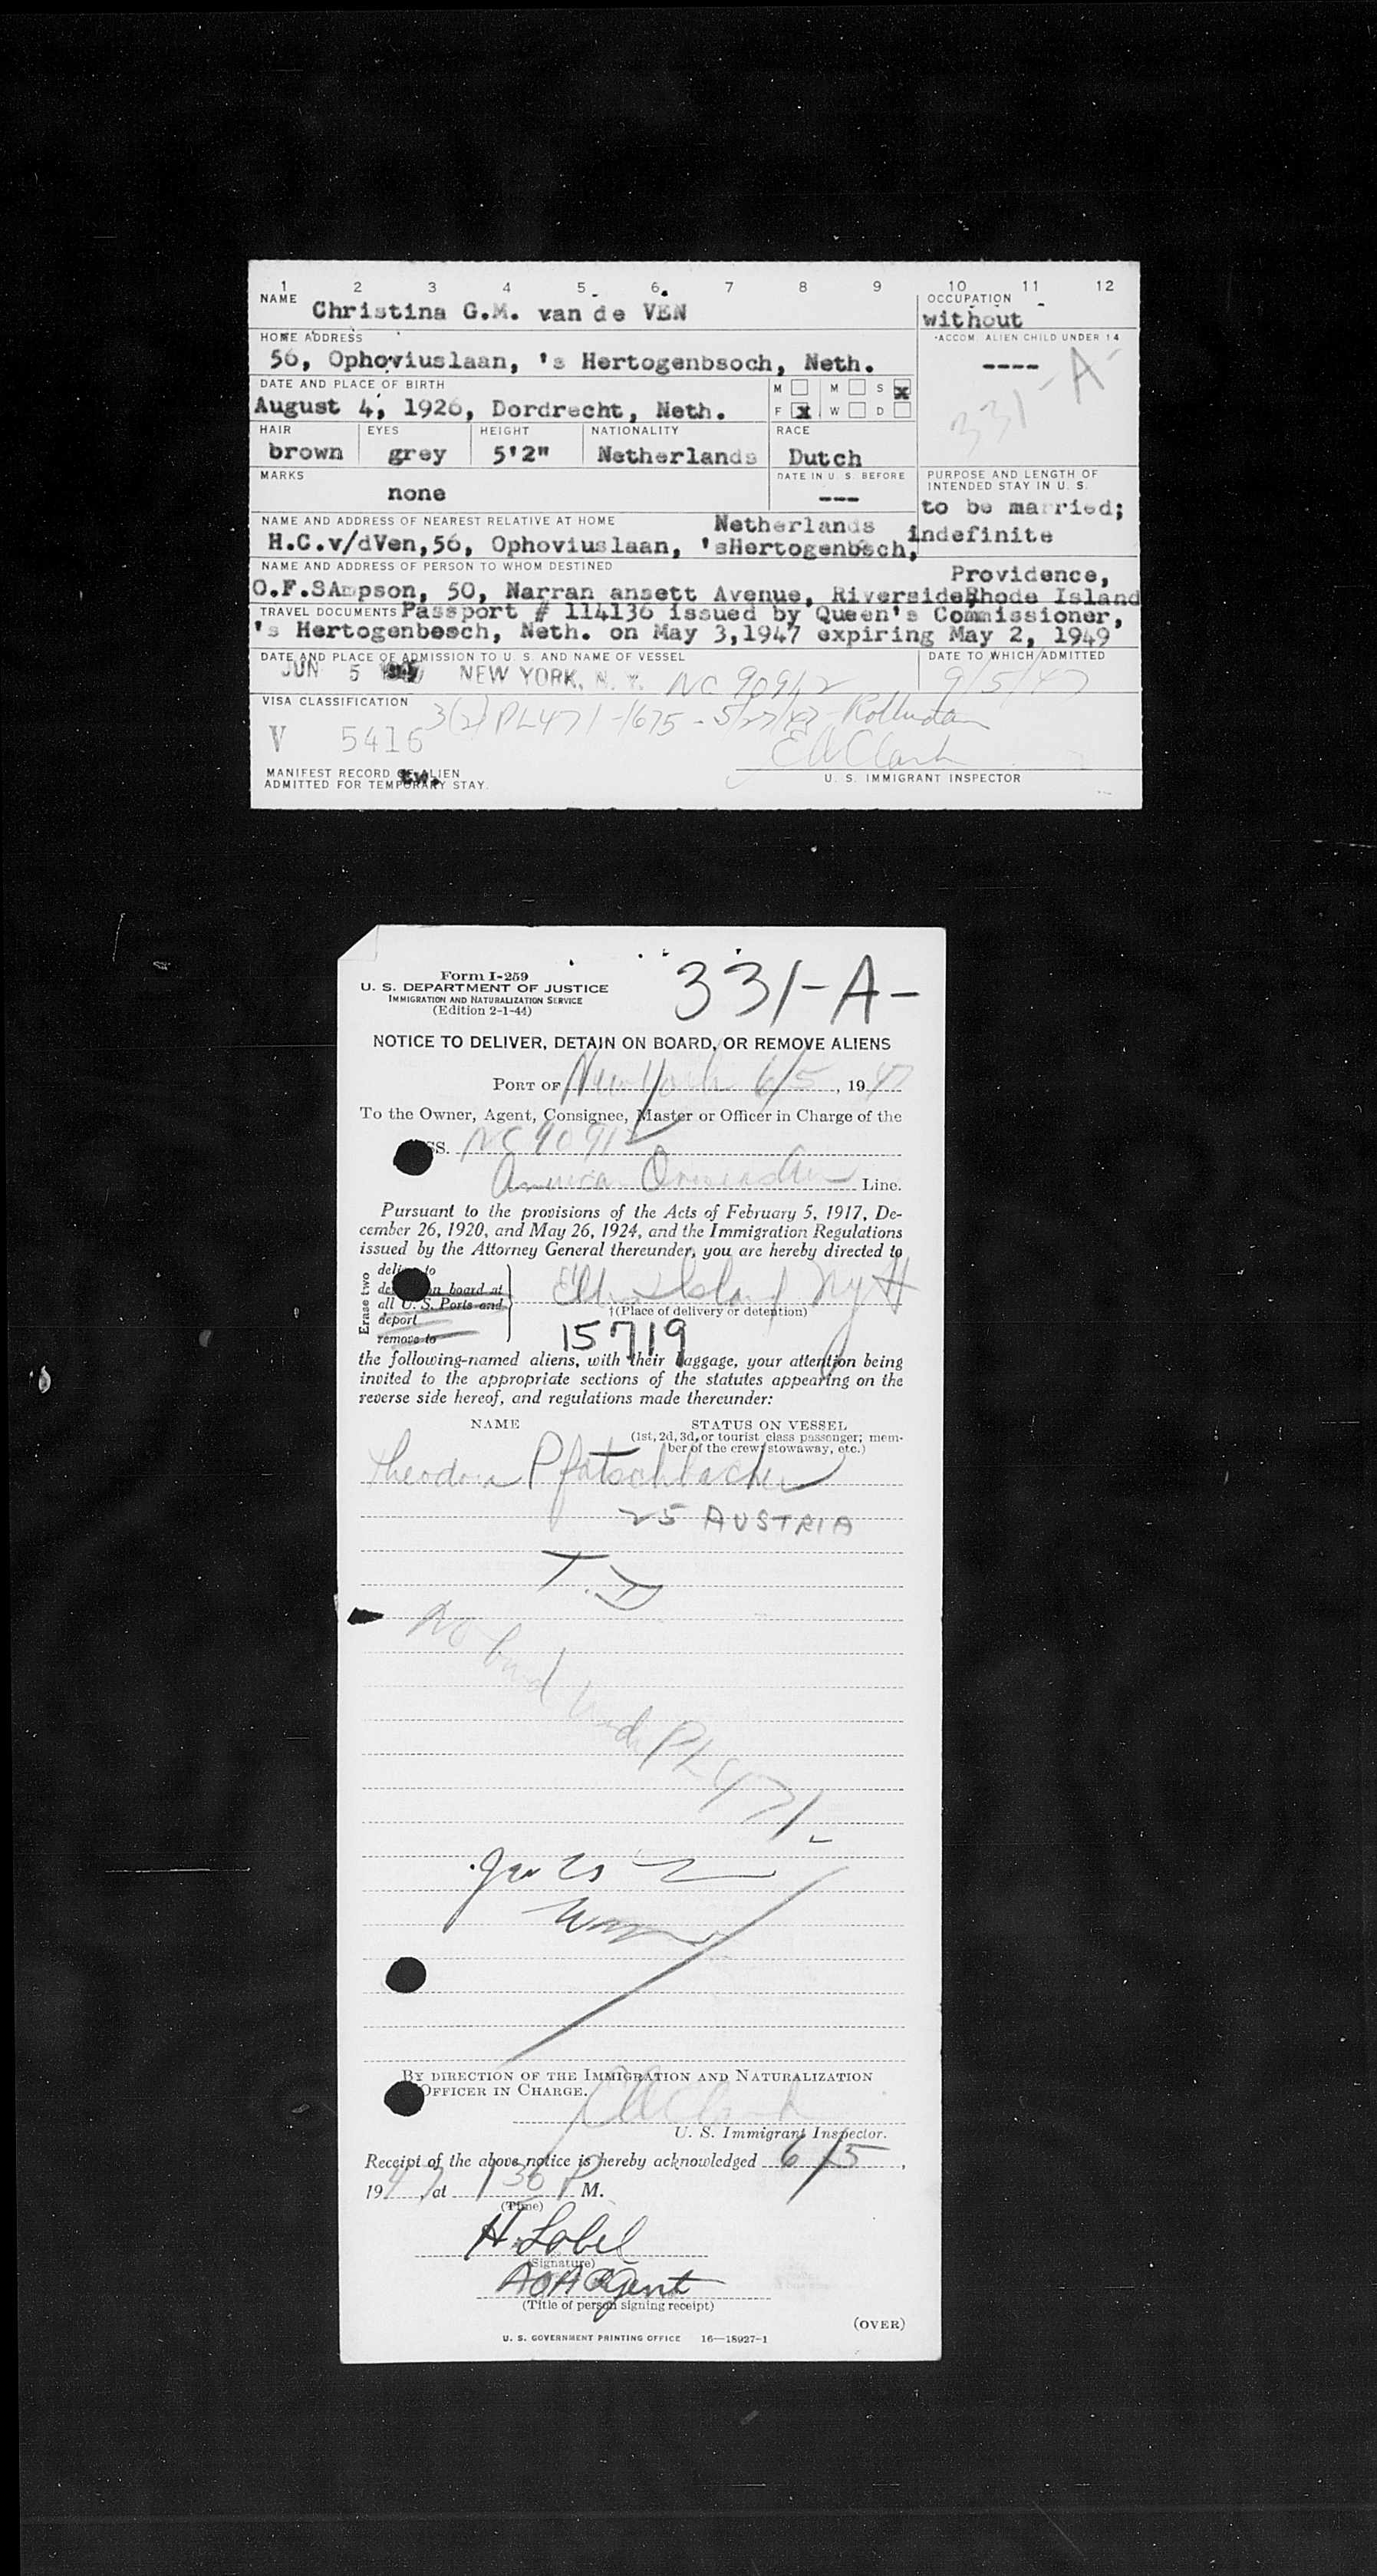 1 2 3 4 5 6 7 8 9 10 11 12
NAME Christina G.M. van de VEN
OCCUPATION
without
HOME ADDRESS
56, Ophoviuslaan, 's Hertogenbsoch, Neth.
ACCOM. ALIEN CHILD UNDER 14
----
331-A-
DATE AND PLACE OF BIRTH
August 4, 1926, Dordrecht, Neth.
M M S x
F x W D
HAIR EYES HEIGHT NATIONALITY RACE
brown grey 5'2" Netherlands Dutch
MARKS
none
DATE IN U. S. BEFORE
---
PURPOSE AND LENGTH OF
INTENDED STAY IN U. S.
to be married;
indefinite
NAME AND ADDRESS OF NEAREST RELATIVE AT HOME
Netherlands
H.C.v/dVen,56, Ophoviuslaan, 'sHertogenbsch,
NAME AND ADDRESS OF PERSON TO WHOM DESTINED
Providence,
O.F.SAmpson, 50, Narran ansett Avenue, Riverside Rhode Island
TRAVEL DOCUMENTS Passport # 114136 issued by Queen's Commissioner,
's Hertogenbosch, Neth. on May 3,1947 expiring May 2, 1949
DATE AND PLACE OF ADMISSION TO U. S. AND NAME OF VESSEL
DATE TO WHICH ADMITTED
JUN 5 NEW YORK, N. Y. NC 90912
9/5/47
VISA CLASSIFICATION
3(2) PL471-1675-5/27/47-Rotterdam
V 5416
E A Clark
MANIFEST RECORD OF ALIEN
ADMITTED FOR TEMPORARY STAY.
tw.
U. S. IMMIGRANT INSPECTOR
Form I-259
U. S. DEPARTMENT OF JUSTICE
IMMIGRATION AND NATURALIZATION SERVICE
(Edition 2-1-44)
331-A-
NOTICE TO DELIVER, DETAIN ON BOARD, OR REMOVE ALIENS
PORT OF New York 6/5, 1947
To the Owner, Agent, Consignee, Master or Officer in Charge of the
SS. NC 90912
American Overseas Air Line.
Pursuant to the provisions of the Acts of February 5, 1917, De-
cember 26, 1920, and May 26, 1924, and the Immigration Regulations
issued by the Attorney General thereunder, you are hereby directed to
Erase two
deliver to
detain on board at
all U. S. Ports and
deport
remove to
Ellis Island NYH
†(Place of delivery or detention)
15719
the following-named aliens, with their baggage, your attention being
invited to the appropriate sections of the statutes appearing on the
reverse side hereof, and regulations made thereunder:
NAME STATUS ON VESSEL
(1st, 2d, 3d, or tourist class passenger; mem-
ber of the crew, stowaway, etc.)
Theodora Pfatschbacher
25 AUSTRIA
T.D
No bond under PL 471.
BY DIRECTION OF THE IMMIGRATION AND NATURALIZATION
OFFICER IN CHARGE.
E A Clark
U. S. Immigrant Inspector.
Receipt of the above notice is hereby acknowledged 6/5,
1947, at 1 30 P M.
(Time)
H. Lobel
(Signature)
AOA Agent
(Title of person signing receipt)
(OVER)
U. S. GOVERNMENT PRINTING OFFICE 16—18927-1